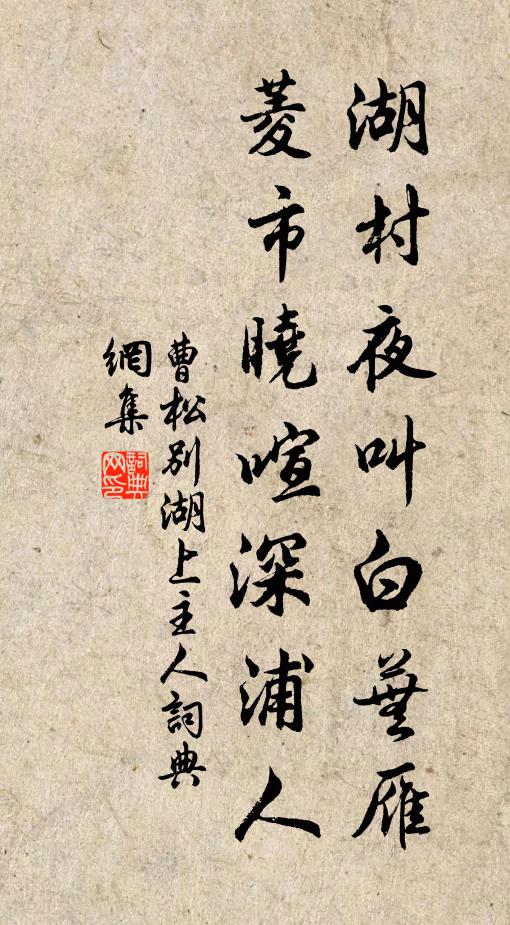 湖村夜叫白蕪雁
菱市曉喧深浦人
曹松別湖上主人詞典
網集
詞典網印